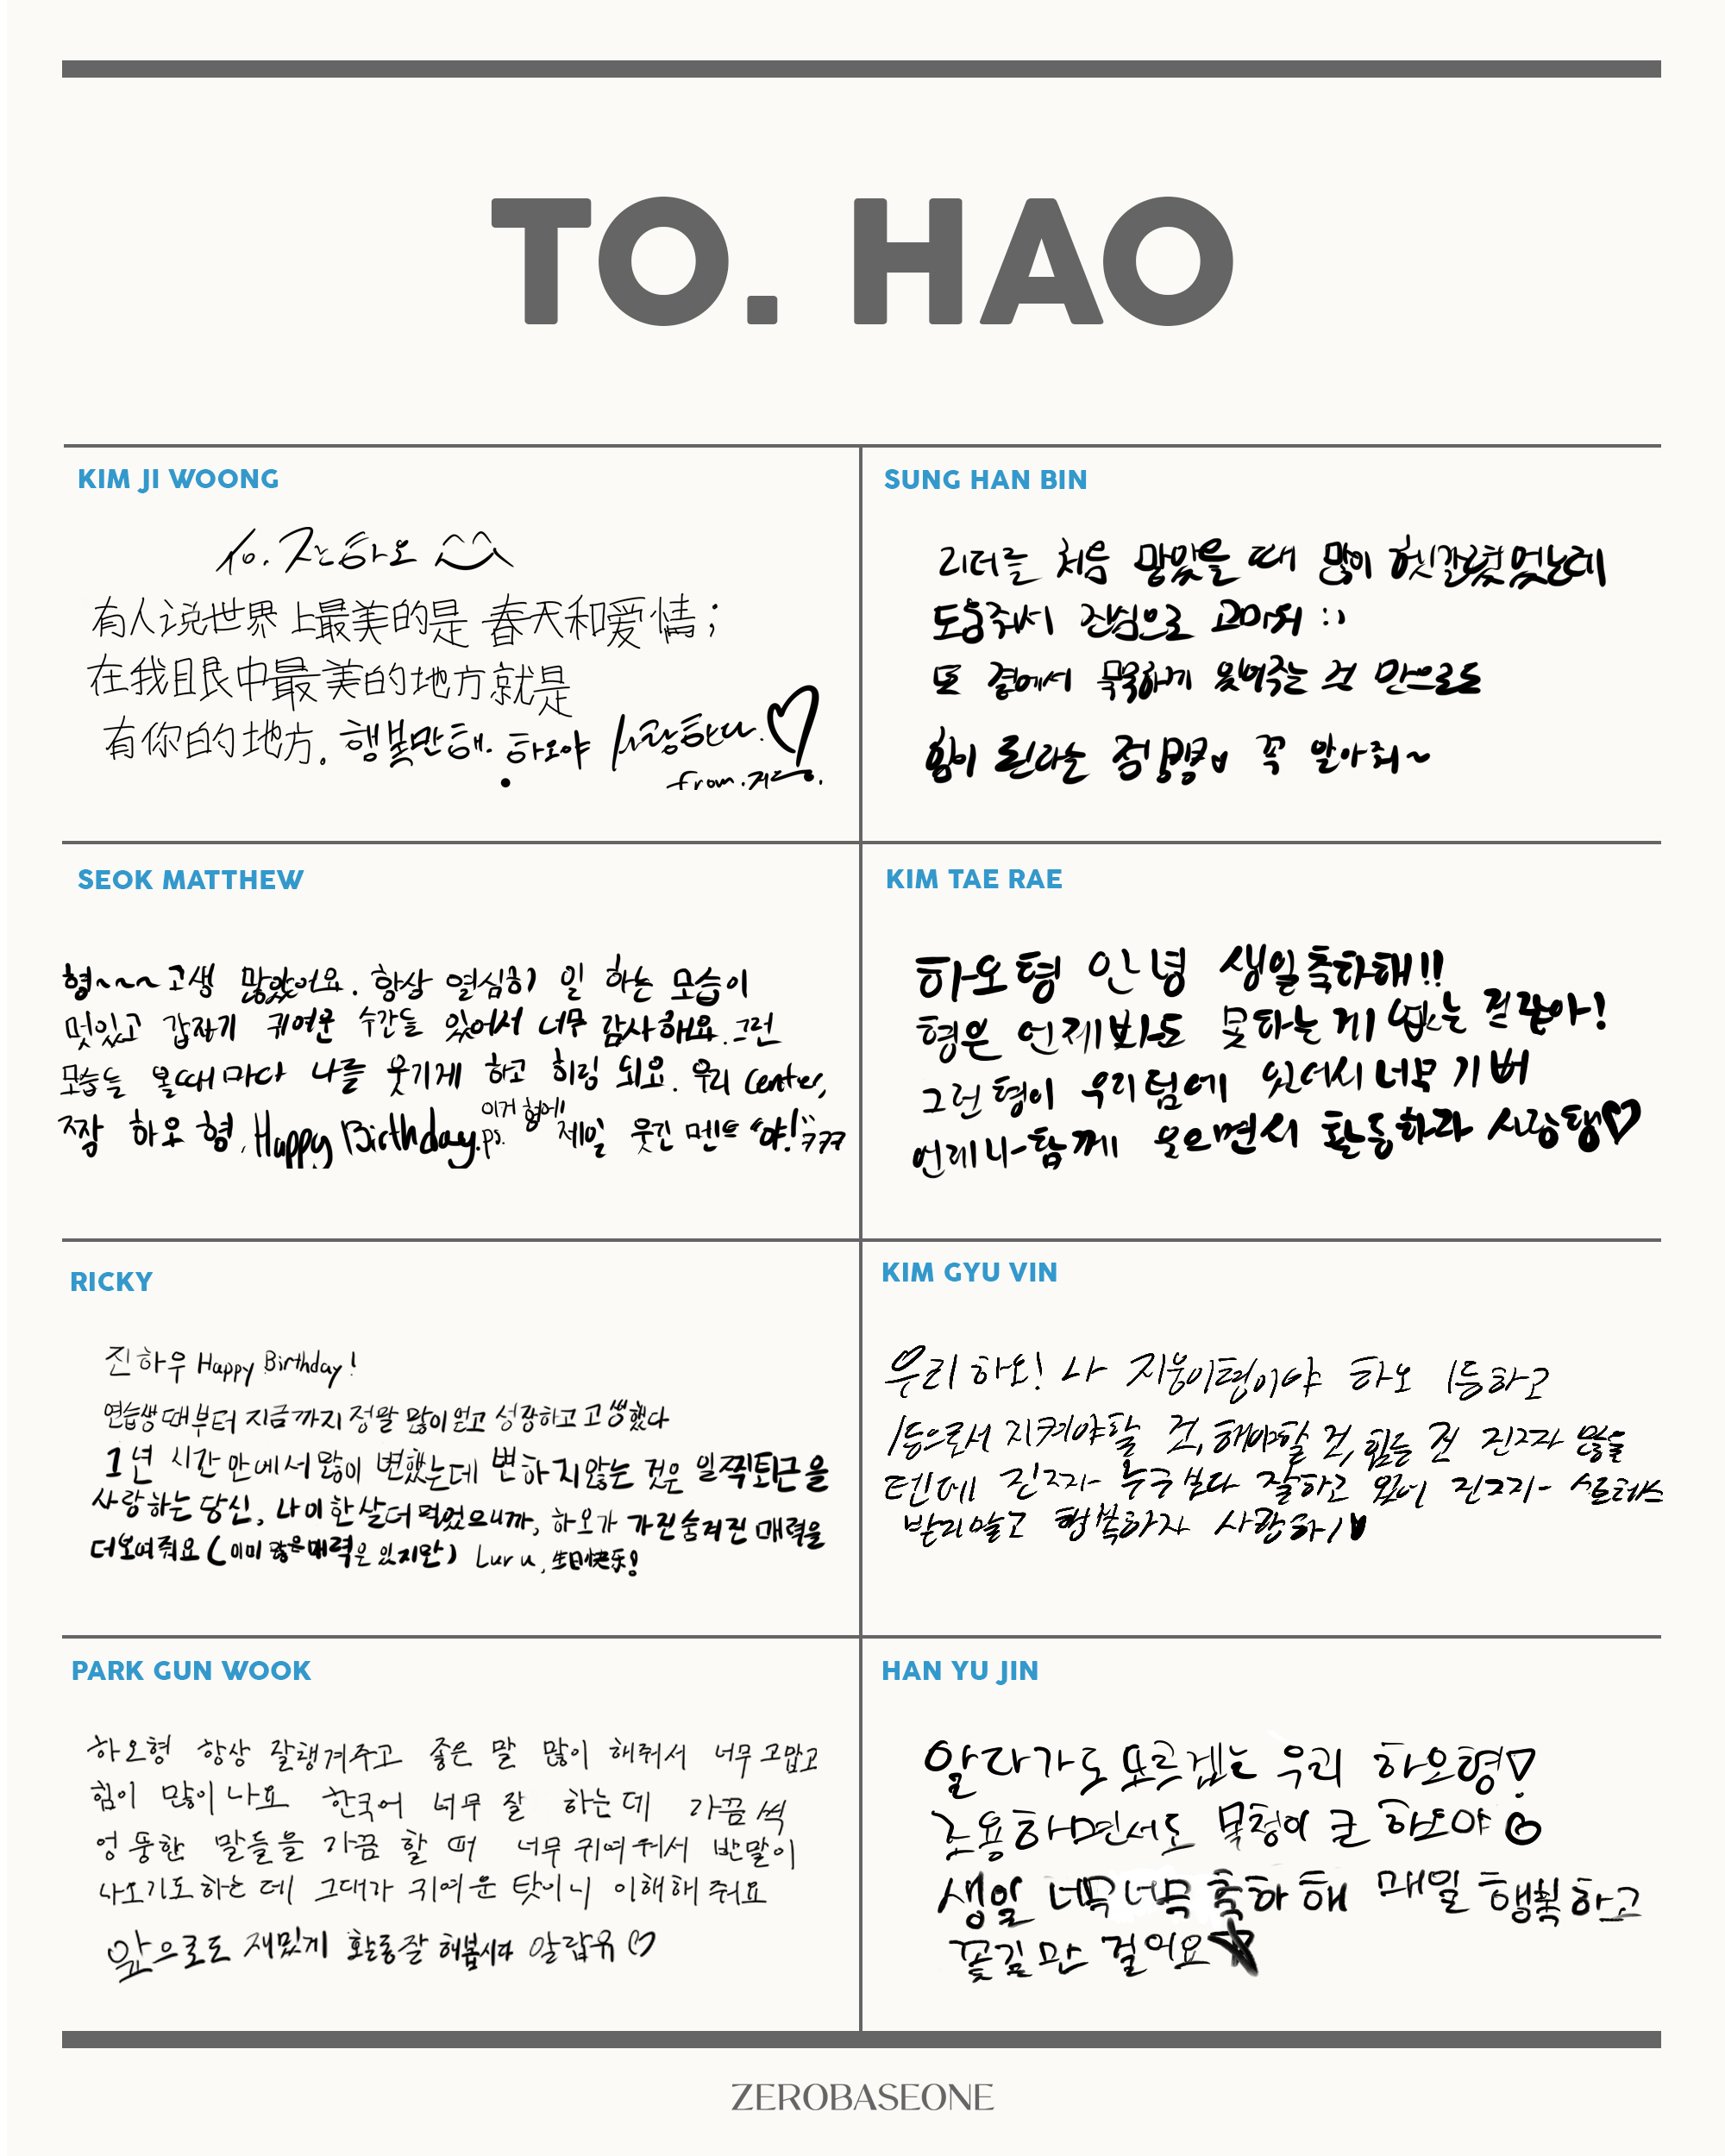 TO. HAO
KIM JI WOONG
To. 장하오
有人说世界上最美的是 春天和爱情；
在我眼中最美的地方就是
有你的地方. 행복만해. 하오야 사랑한다.♡
from.지웅.
SUNG HAN BIN
리더를 처음 맡았을 때 많이 헷갈렸었는데
도움줘서 진심으로 고마워 :)
또 곁에서 묵묵하게 있어주는 것 만으로도
힘이 된다는 점 꼭 알아줘~
SEOK MATTHEW
형~~~고생 많았어요. 항상 열심히 일 하는 모습이
멋있고 갑자기 귀여운 순간들 있어서 너무 감사해요. 그런
모습들 볼때마다 나를 웃기게 하고 힐링 되요. 우리 center,
짱 하오 형, Happy Birthday. ps. 이거 형에! 제일 웃긴 멘트 "야!" ㅋㅋㅋ
KIM TAE RAE
하오형 안녕 생일축하해!!
형은 언제봐도 못하는게 없는 것같아!
그런 형이 우리팀에 있어서 너무 기뻐
언제나 함께 웃으면서 활동하자 사랑행♡
RICKY
진하우 Happy Birthday!
연습생때부터 지금까지 정말 많이 얻고 성장하고 고생했다
1년 시간 만에서 많이 변했는데 변하지않는 것은 일찍퇴근을
사랑하는 당신, 나이 한살더 먹었으니까, 하오가 가진숨겨진 매력을
더보여줘요 (이미 많은매력은 있지만) Luru, 生日快乐!
KIM GYU VIN
우리 하오! 나 지웅이형이야 하오 1등하고
1등으로서 지켜야할 것, 해야할 것, 힘든 것 진짜 많을
텐데 진짜 누구보다 잘하고 있어 진짜 스트레스
받지말고 행복하자 사랑해♥
PARK GUN WOOK
하오형 항상 잘챙겨주고 좋은 말 많이 해줘서 너무 고맙고
힘이 많이 나요 한국어 너무 잘 하는데 가끔씩
엉뚱한 말들을 가끔 할 때 너무 귀여워서 반말이
나오기도 하는데 그대가 귀여운 탓이니 이해해 줘요
앞으로도 재밌게 활동잘 해봅시다 알랍유♡
HAN YU JIN
알다가도 모르겠는 우리 하오형♡
조용하면서도 목청이 큰 하오야♡
생일 너무너무 축하해 매일 행복하고
꽃길만 걸어요★
ZEROBASEONE